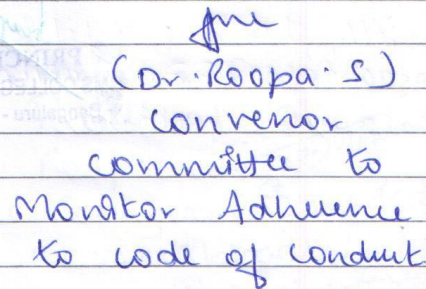 (Dr. Roopa. S)
convenor
committee to
Monitor Adherence
to code of conduct